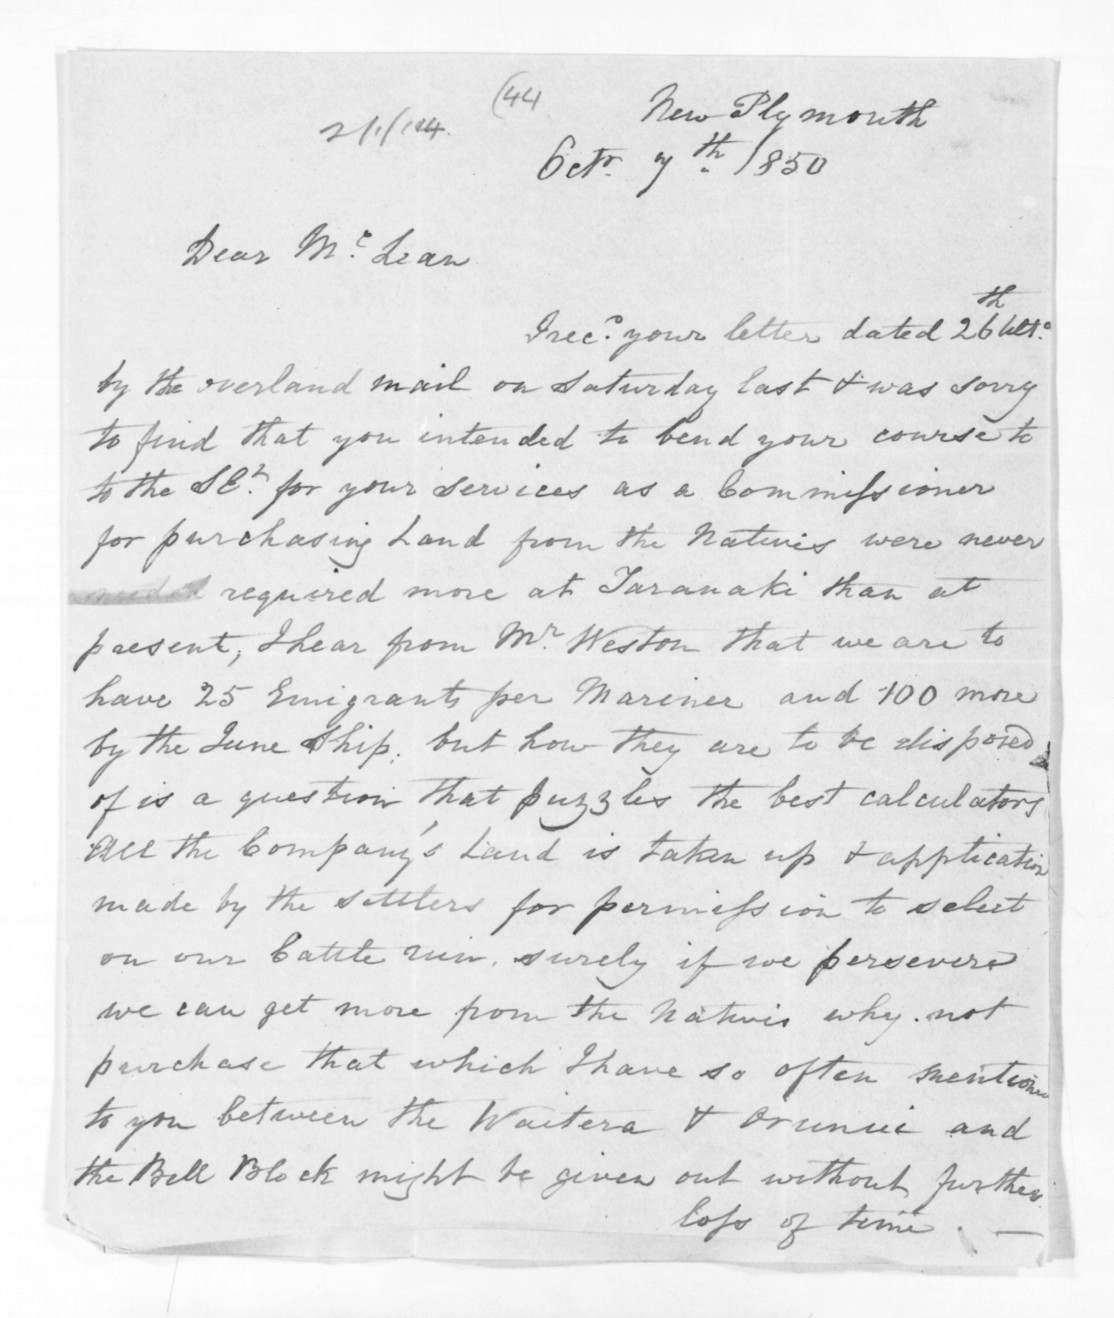 (44
New Plymouth
Octr. 7th. 1850
Dear Mc. Lean
I recd. your letter dated 26th ulto.
by the overland mail on Saturday last & was sorry
to find that you intended to bend your course to
to the SEt. for your services as a Commissioner
for purchasing Land from the Natives were never
required more at Taranaki than at
present, I hear from Mr Weston that we are to
have 25 Emigrants per Mariner and 100 more
by the June Ship. but how they are to be disposed
of is a question that puzzles the best calculators
All the Company's Land is taken up & application
made by the settlers for permission to select
on our Cattle run. surely if we persevere
we can get more from the Natives why not
purchase that which I have so often mentioned
to you between the Waitera & and
the Bell Block might be given out without further
loss of time. —